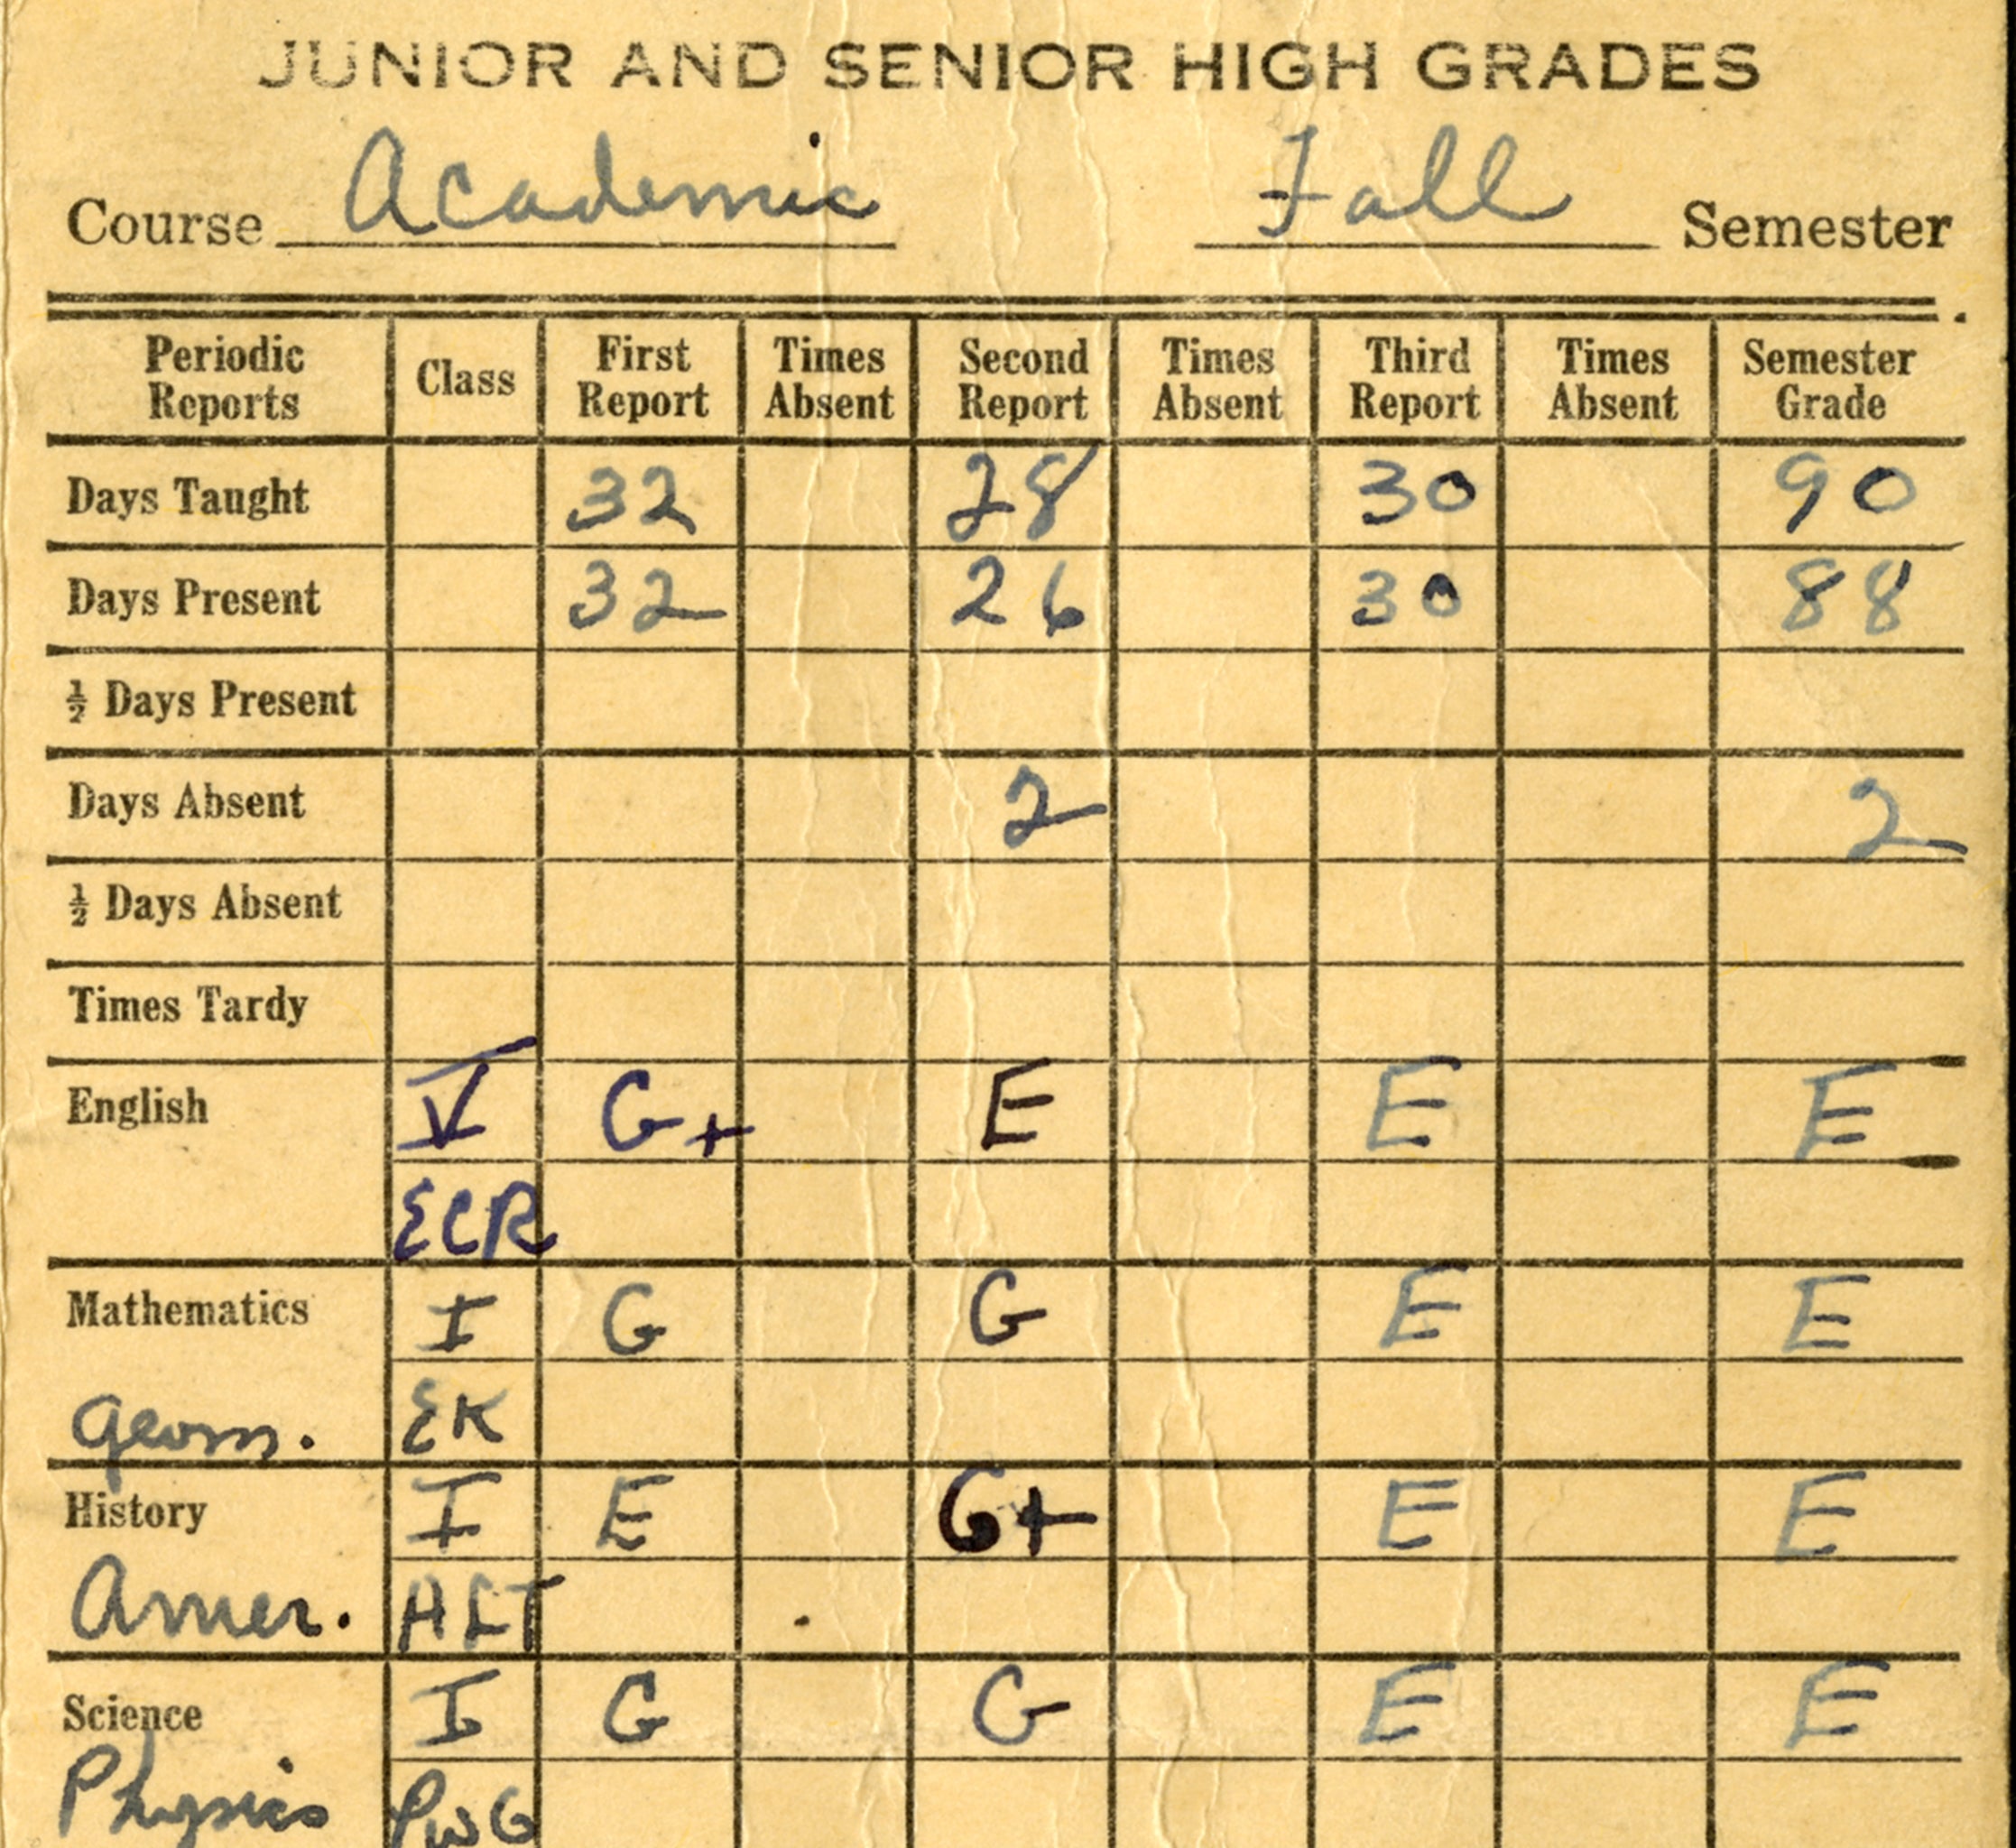 JUNIOR AND SENIOR HIGH GRADES
Course Academic Fall Semester
Periodic Reports Class First Report Times Absent Second Report Times Absent Third Report Times Absent Semester Grade
Days Taught 32 28 30 90
Days Present 32 26 30 88
½ Days Present
Days Absent 2 2
½ Days Absent
Times Tardy
English V G+ E E E
ECR
Mathematics I G G E E
Geom. EK
History I E G+ E E
Amer. HLT
Science I G G E E
Physics PWG